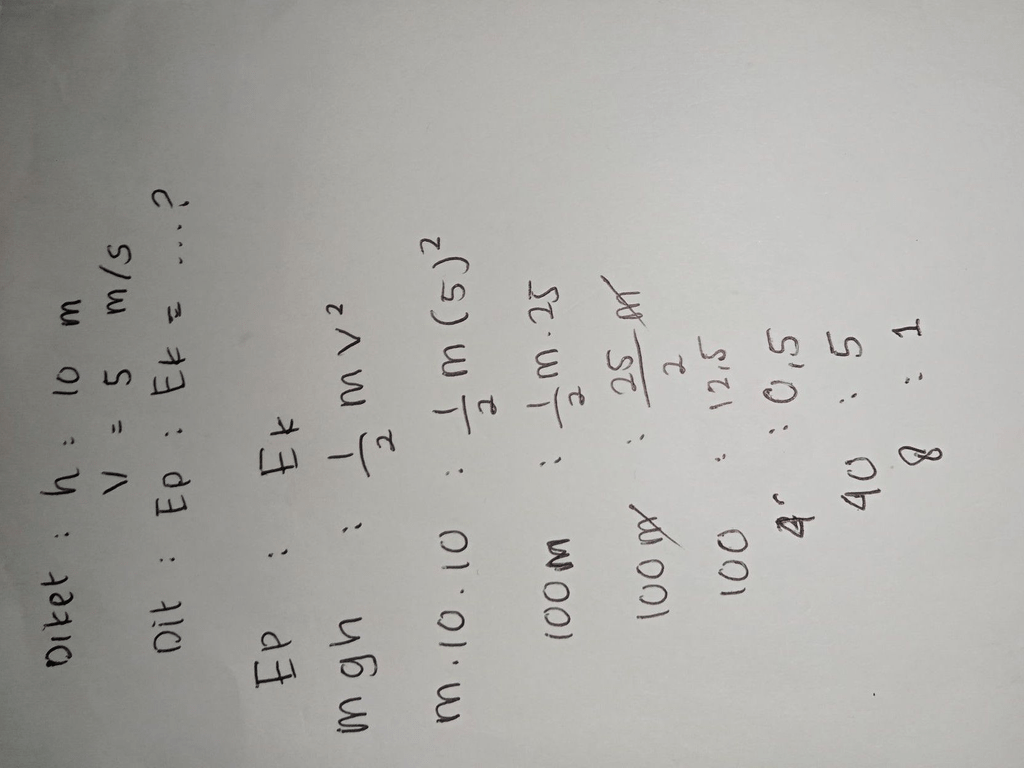 Diket : h = 10 m
V = 5 m/s
Dit : Ep : Ek = ....?
Ep : Ek
mgh : 1/2 m v²
m.10.10 : 1/2 m (5)²
100m : 1/2 m.25
100 m : 25/2 m
100 : 12,5
: 0,5
40 : 5
8 : 1